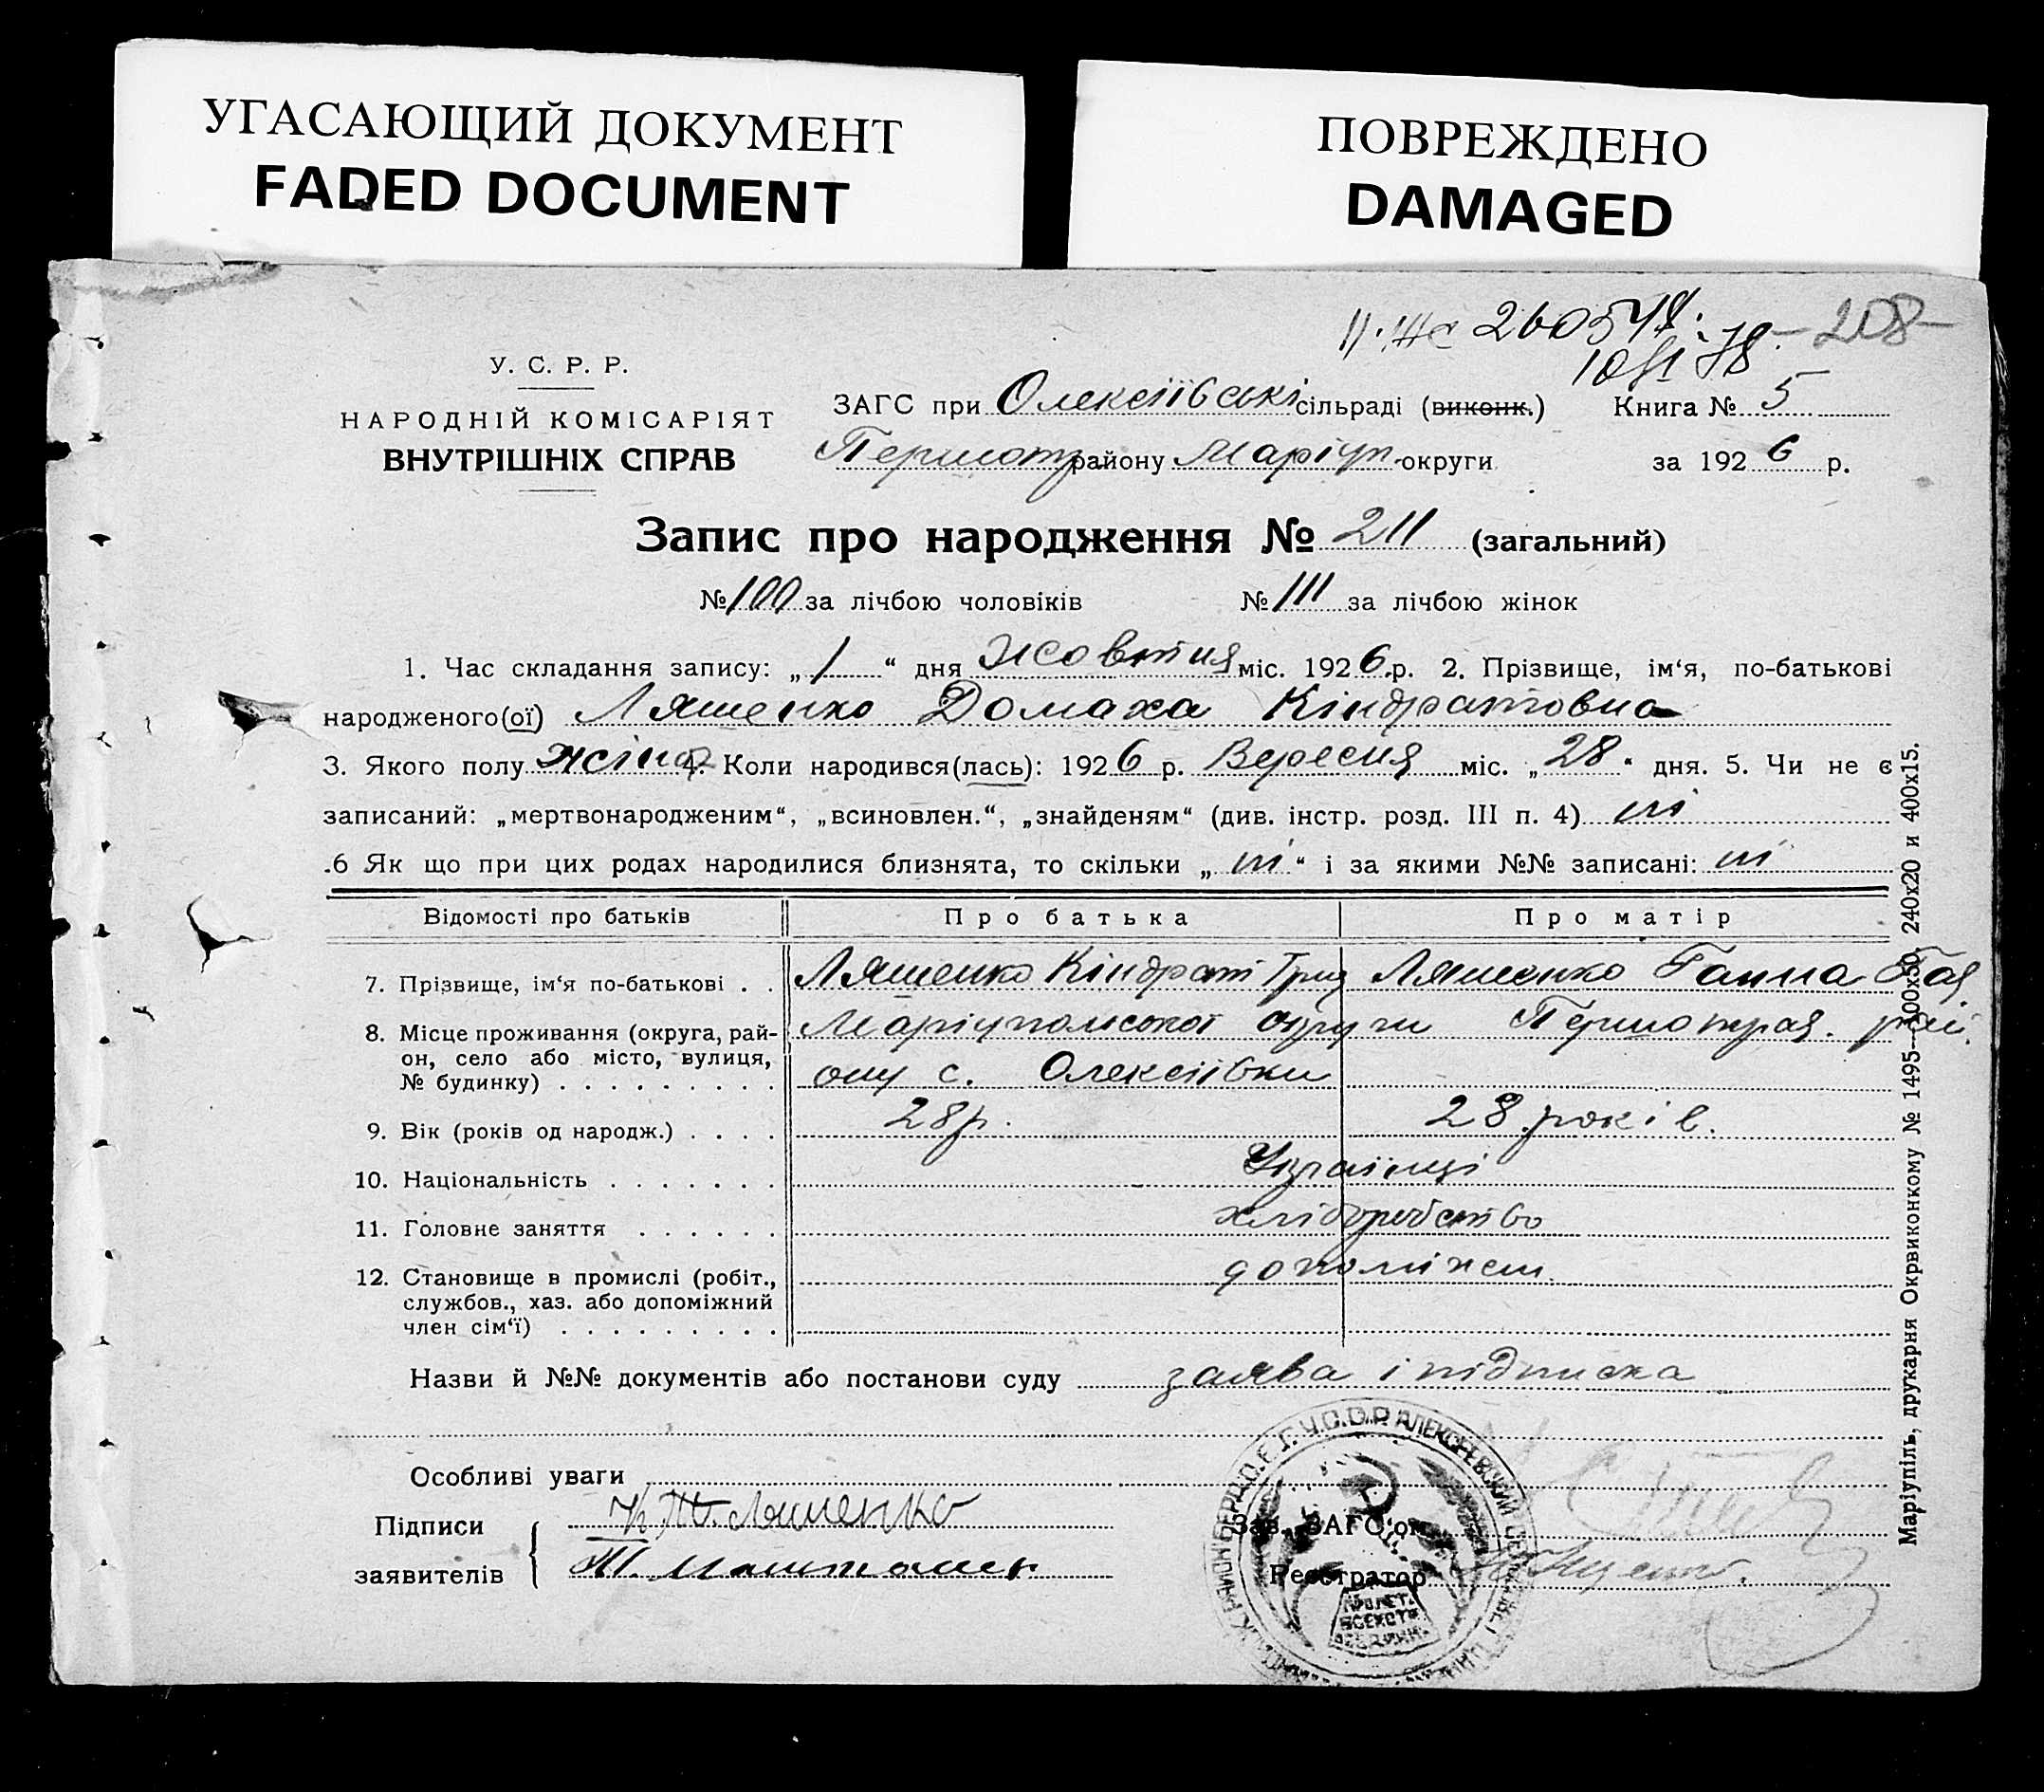 УГАСАЮЩИЙ ДОКУМЕНТ
FADED DOCUMENT
ПОВРЕЖДЕНО
DAMAGED
260548 208
У. С. Р. Р.
НАРОДНІЙ КОМІСАРІЯТ
ВНУТРІШНІХ СПРАВ
ЗАГС при Олексіївські сільраді (виконк.) Книга № 5
Першотр району Маріуп. округи за 1926 р.
Запис про народження № 211 (загальний)
№ 100 за лічбою чоловіків № 111 за лічбою жінок
1. Час складання запису: „1“ дня Жовтня міс. 1926 р. 2. Прізвище, ім‘я, по-батькові
народженого(ої) Ляшенко Домаха Кіндратовна
3. Якого полу жіноч 4. Коли народився(лась): 1926 р. Вересня міс. „28“ дня. 5. Чи не є
записаний: „мертвонародженим“, „всиновлен.“, „знайденям“ (див. інстр. розд. III п. 4) ні
.6 Як що при цих родах народилися близнята, то скільки „ні“ і за якими №№ записані: ні
Відомості про батьків Про батька Про матір
7. Прізвище, ім‘я по-батькові . . Ляшенко Кіндрат Ляшенко Ганна
8. Місце проживання (округа, рай- Маріупольської округи Першотрав. рай.
он, село або місто, вулиця, ону с. Олексіївки
№ будинку) . . . . . . . . .
9. Вік (років од народж.) . . . . 28 р. 28 років.
10. Національність . . . . . . . Українці
11. Головне заняття . . . . . . хліборобство
12. Становище в промислі (робіт., допоміжн.
службов., хаз. або допоміжний
член сім‘ї) . . . . . . . . .
Назви й №№ документів або постанови суду заява і підписка
Особливі уваги
Підписи К. Ляшенко Зав. ЗАГС‘ом
заявителів Реєстратор
У.С.С.Р. АЛЕКСЕЕВСКИЙ
ПРОЛЕТ.
ВСЕХ СТР.
СОЕДИН.
Маріупіль, друкарня Окрвиконкому № 1495—100x50, 240x20 и 400x15.